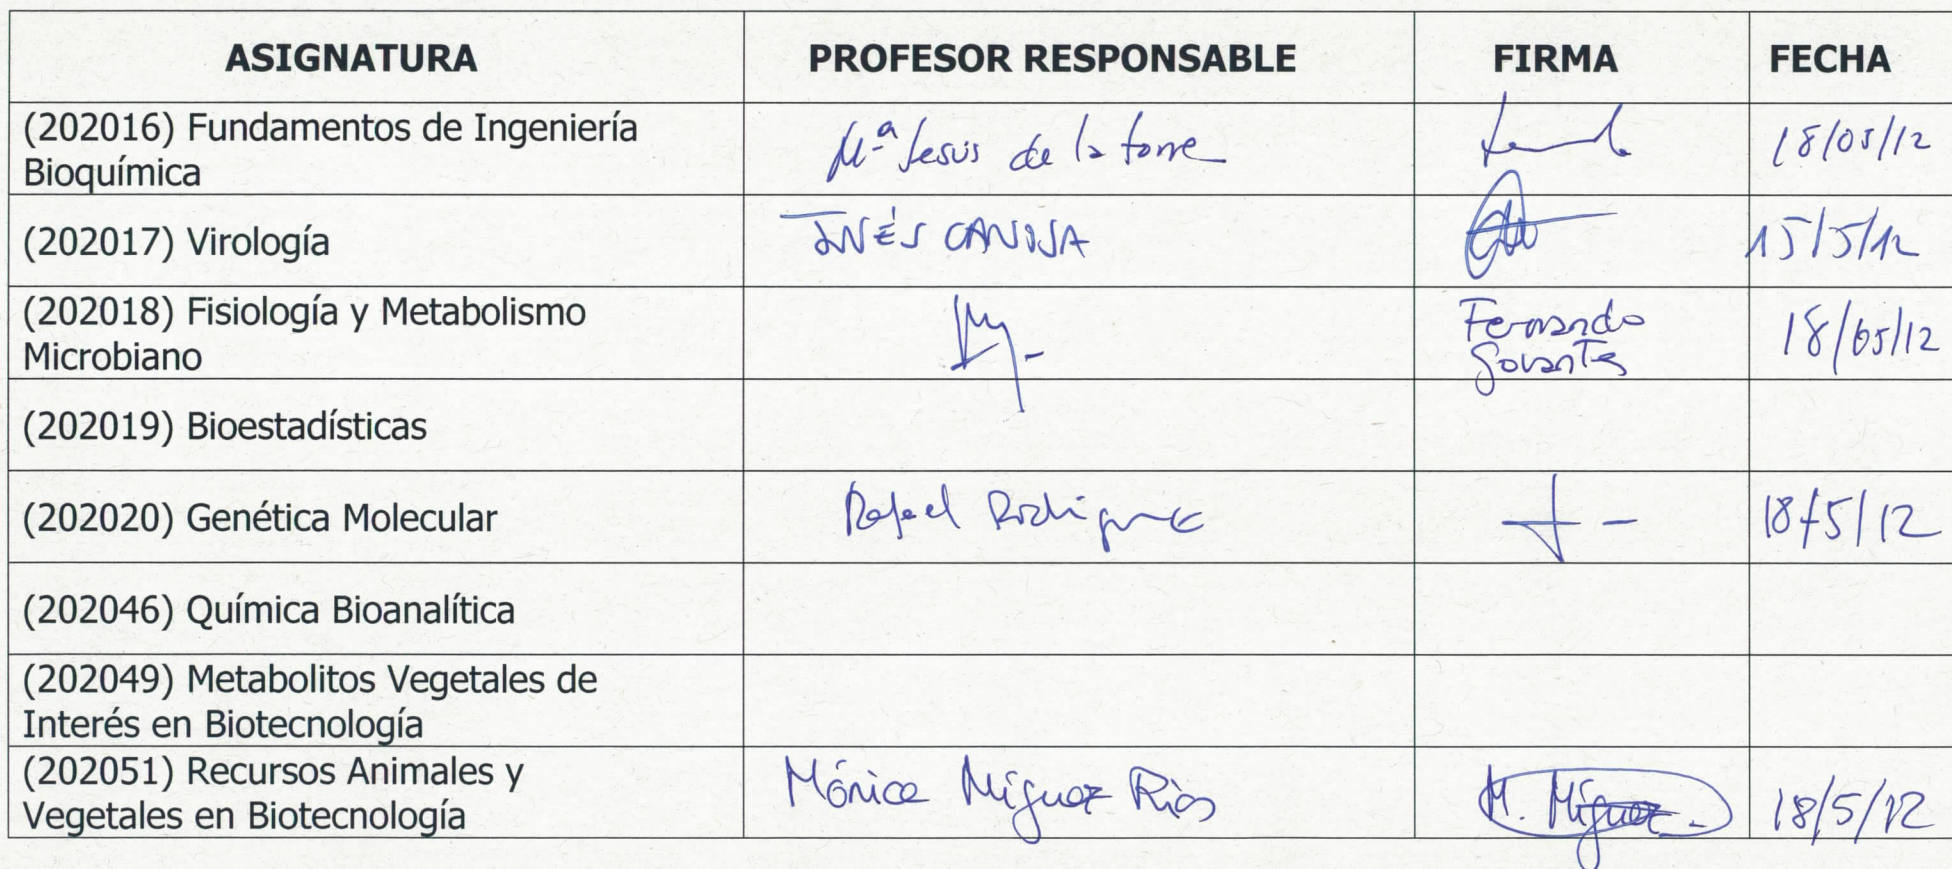 ASIGNATURA PROFESOR RESPONSABLE FIRMA FECHA
(202016) Fundamentos de Ingeniería
Bioquímica
Mª Jesús de la torre 18/05/12
(202017) Virología INÉS 15/5/12
(202018) Fisiología y Metabolismo
Microbiano
Fernando 18/05/12
Govantes
(202019) Bioestadísticas
(202020) Genética Molecular Rafael 18/5/12
(202046) Química Bioanalítica
(202049) Metabolitos Vegetales de
Interés en Biotecnología
(202051) Recursos Animales y
Vegetales en Biotecnología
Mónica Míguez Ríos M. Míguez 18/5/12